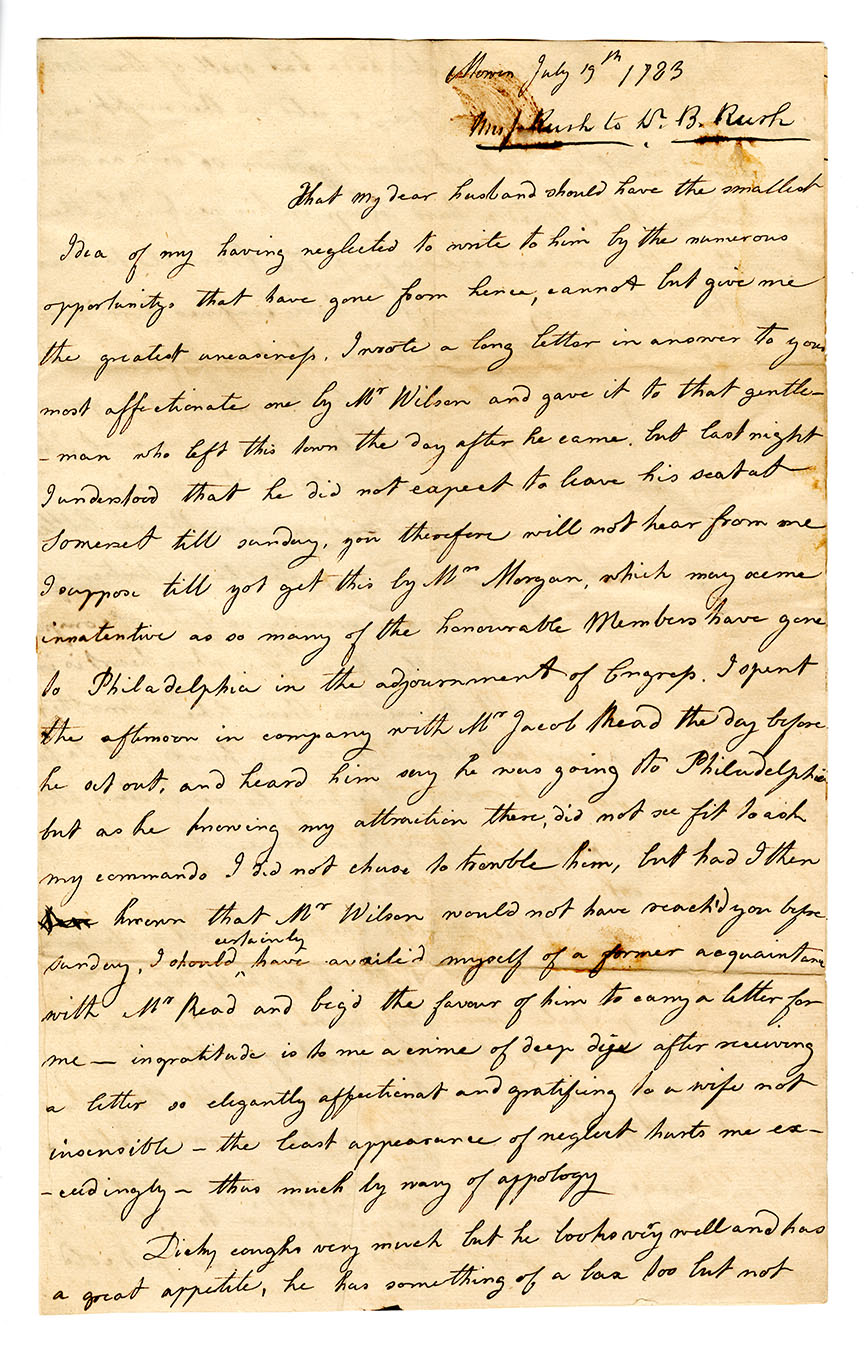 Morven July 19th 1783
Mrs J Rush to Dr. B. Rush
That my dear husband should have the smallest
Idea of my having neglected to write to him by the numerous
opportunitys that have gone from hence, cannot but give me
the greatest uneasiness. I wrote a long letter in answer to your
most affectionate one by Mr Wilson and gave it to that gentle–
–man who left this town the day after he came. but last night
I understood that he did not expect to leave his seat at
Somerset till sunday, you therefore will not hear from me
I suppose till yo1 get this by Mrs Morgan, which may seeme
innatentive as so many of the honourable Members have gone
to Philadelphia in the adjournment of Congress. I spent
the afternoon in company with Mr Jacob Read the day before
he set out, and heard him say he was going to Philadelphia
but as he knowing my attraction there, did not see fit to ask
my commands I did not chuse to trouble him, but had I then
known that Mr Wilson would not have reach'd you before
sunday, I should certainly have availe'd myself of a former acquaintanc
with Mr Read and beg'd the favour of him to carry a letter for
me — ingratitude is to me a crime of deep dye after receiving
a letter so elegantly affectionat and gratifiing to a wife not
insensible – the least appearance of neglect hurts me ex–
–ceedingly – thus much by way of appology
Dicky coughs very much but he looks very well and has
a great appetite, he has something of a lax too but not